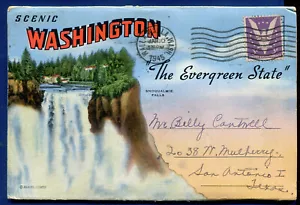 SCENIC
WASHINGTON
1945
"The Evergreen State"
SNOQUALMIE
FALLS
Mr. Billy Cantwell
2038 W. Mulberry,
San Antonio 1
Texas.